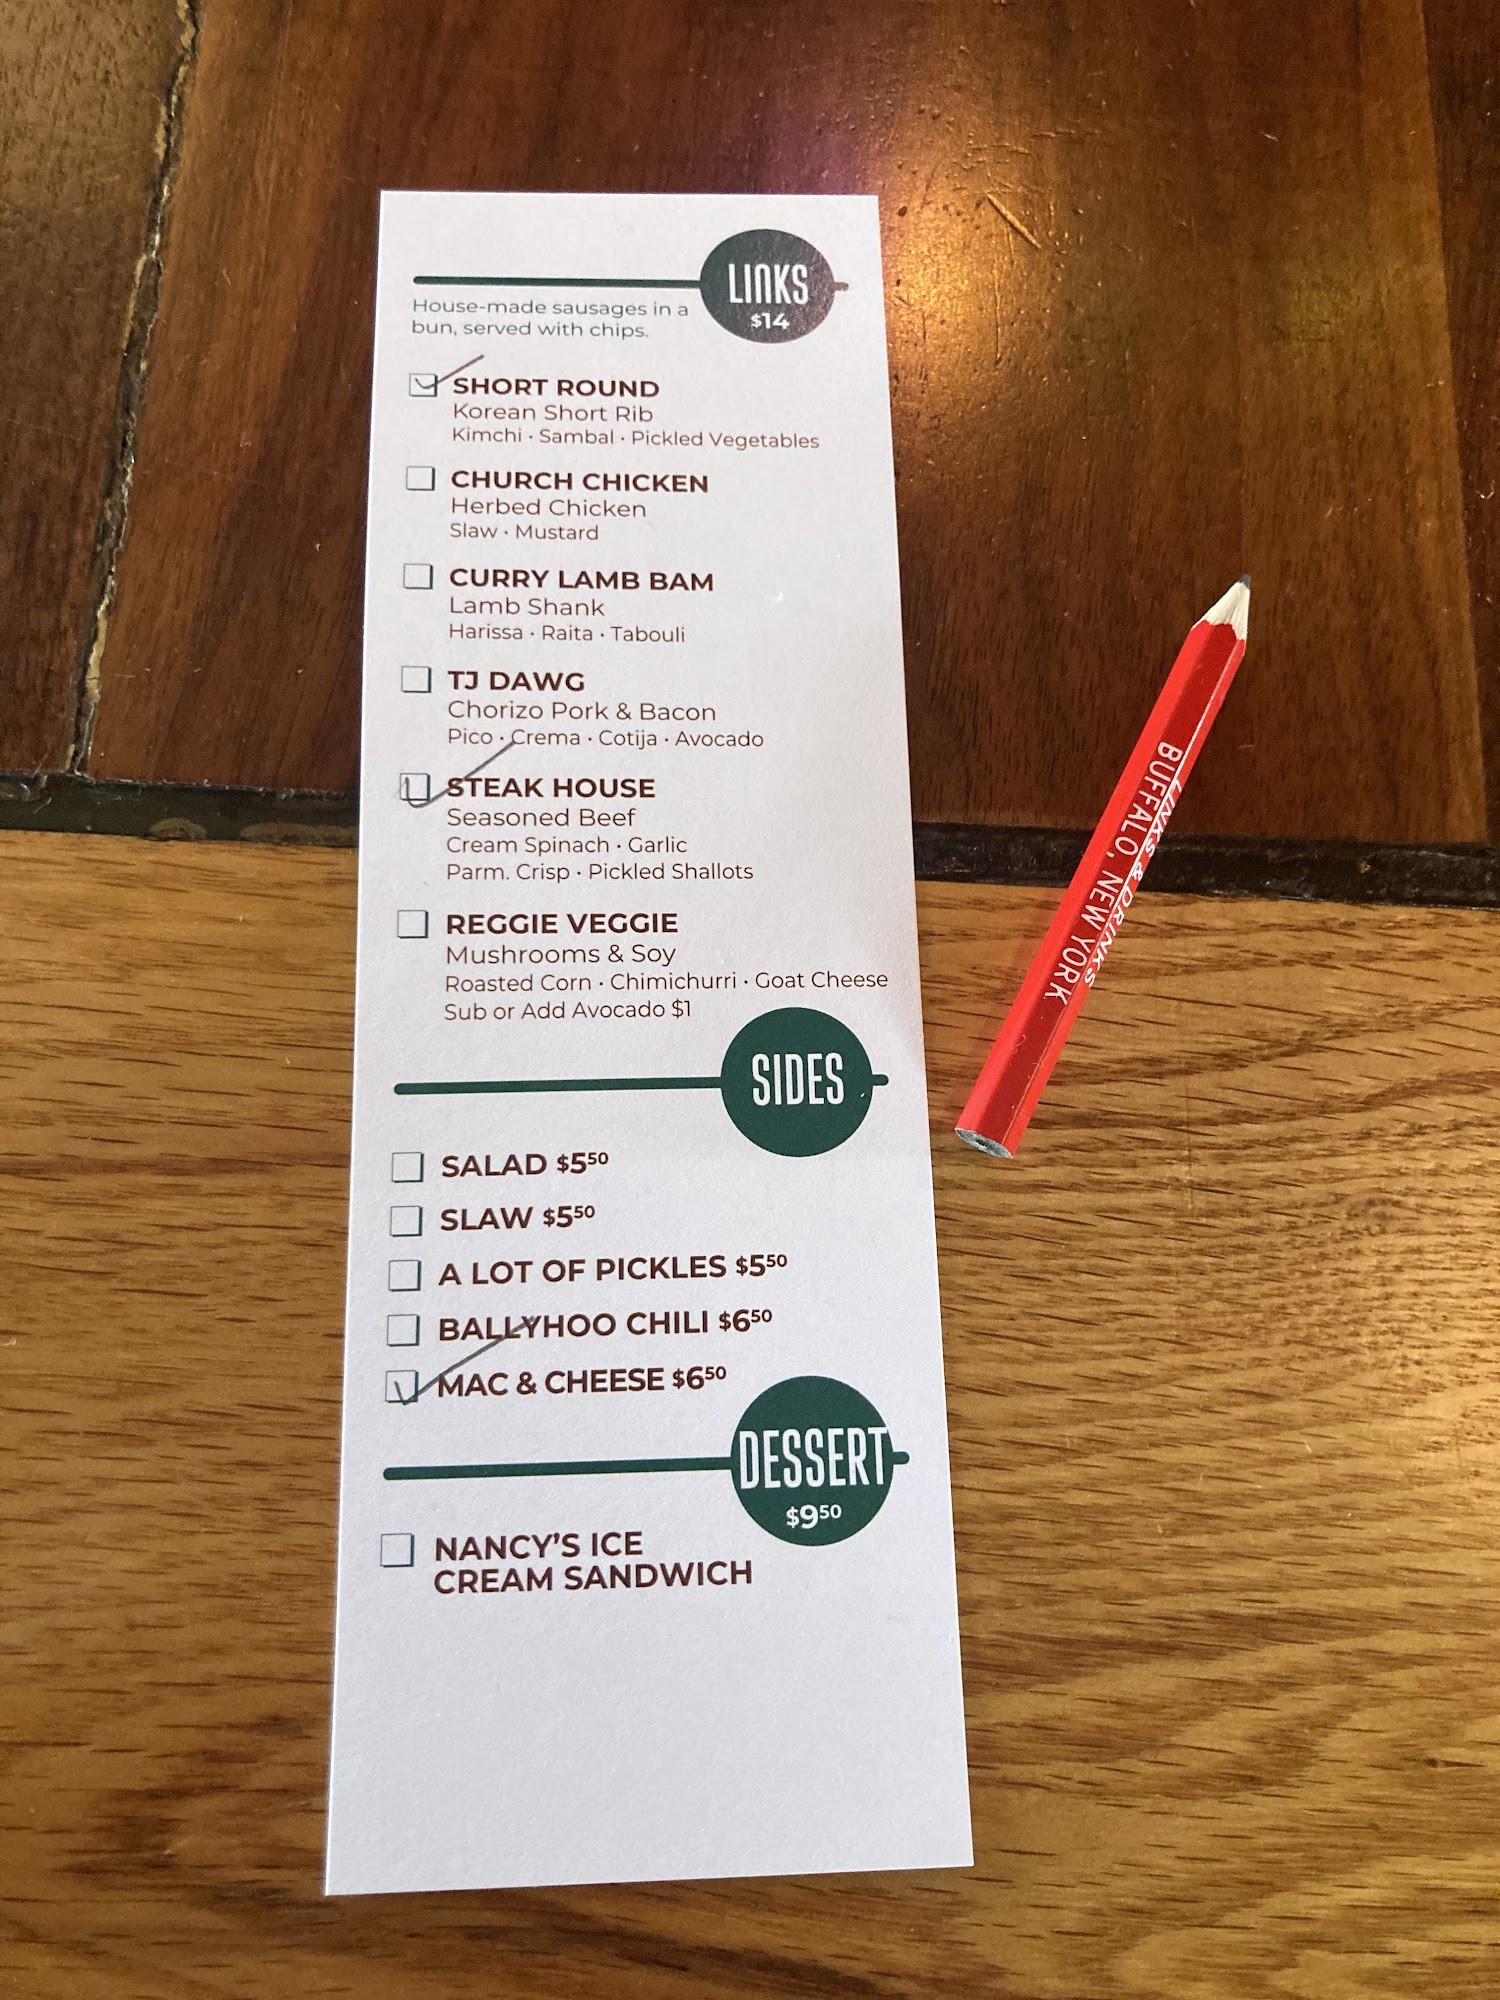 LINKS
$14
House-made sausages in a
bun, served with chips.
SHORT ROUND
Korean Short Rib
Kimchi • Sambal • Pickled Vegetables
CHURCH CHICKEN
Herbed Chicken
Slaw • Mustard
CURRY LAMB BAM
Lamb Shank
Harissa • Raita • Tabouli
TJ DAWG
Chorizo Pork & Bacon
Pico • Crema • Cotija • Avocado
STEAK HOUSE
Seasoned Beef
Cream Spinach • Garlic
Parm. Crisp • Pickled Shallots
REGGIE VEGGIE
Mushrooms & Soy
Roasted Corn • Chimichurri • Goat Cheese
Sub or Add Avocado $1
SIDES
SALAD $5⁵⁰
SLAW $5⁵⁰
A LOT OF PICKLES $5⁵⁰
BALLYHOO CHILI $6⁵⁰
MAC & CHEESE $6⁵⁰
DESSERT
$9⁵⁰
NANCY'S ICE
CREAM SANDWICH
LINKS & DRINKS
BUFFALO, NEW YORK